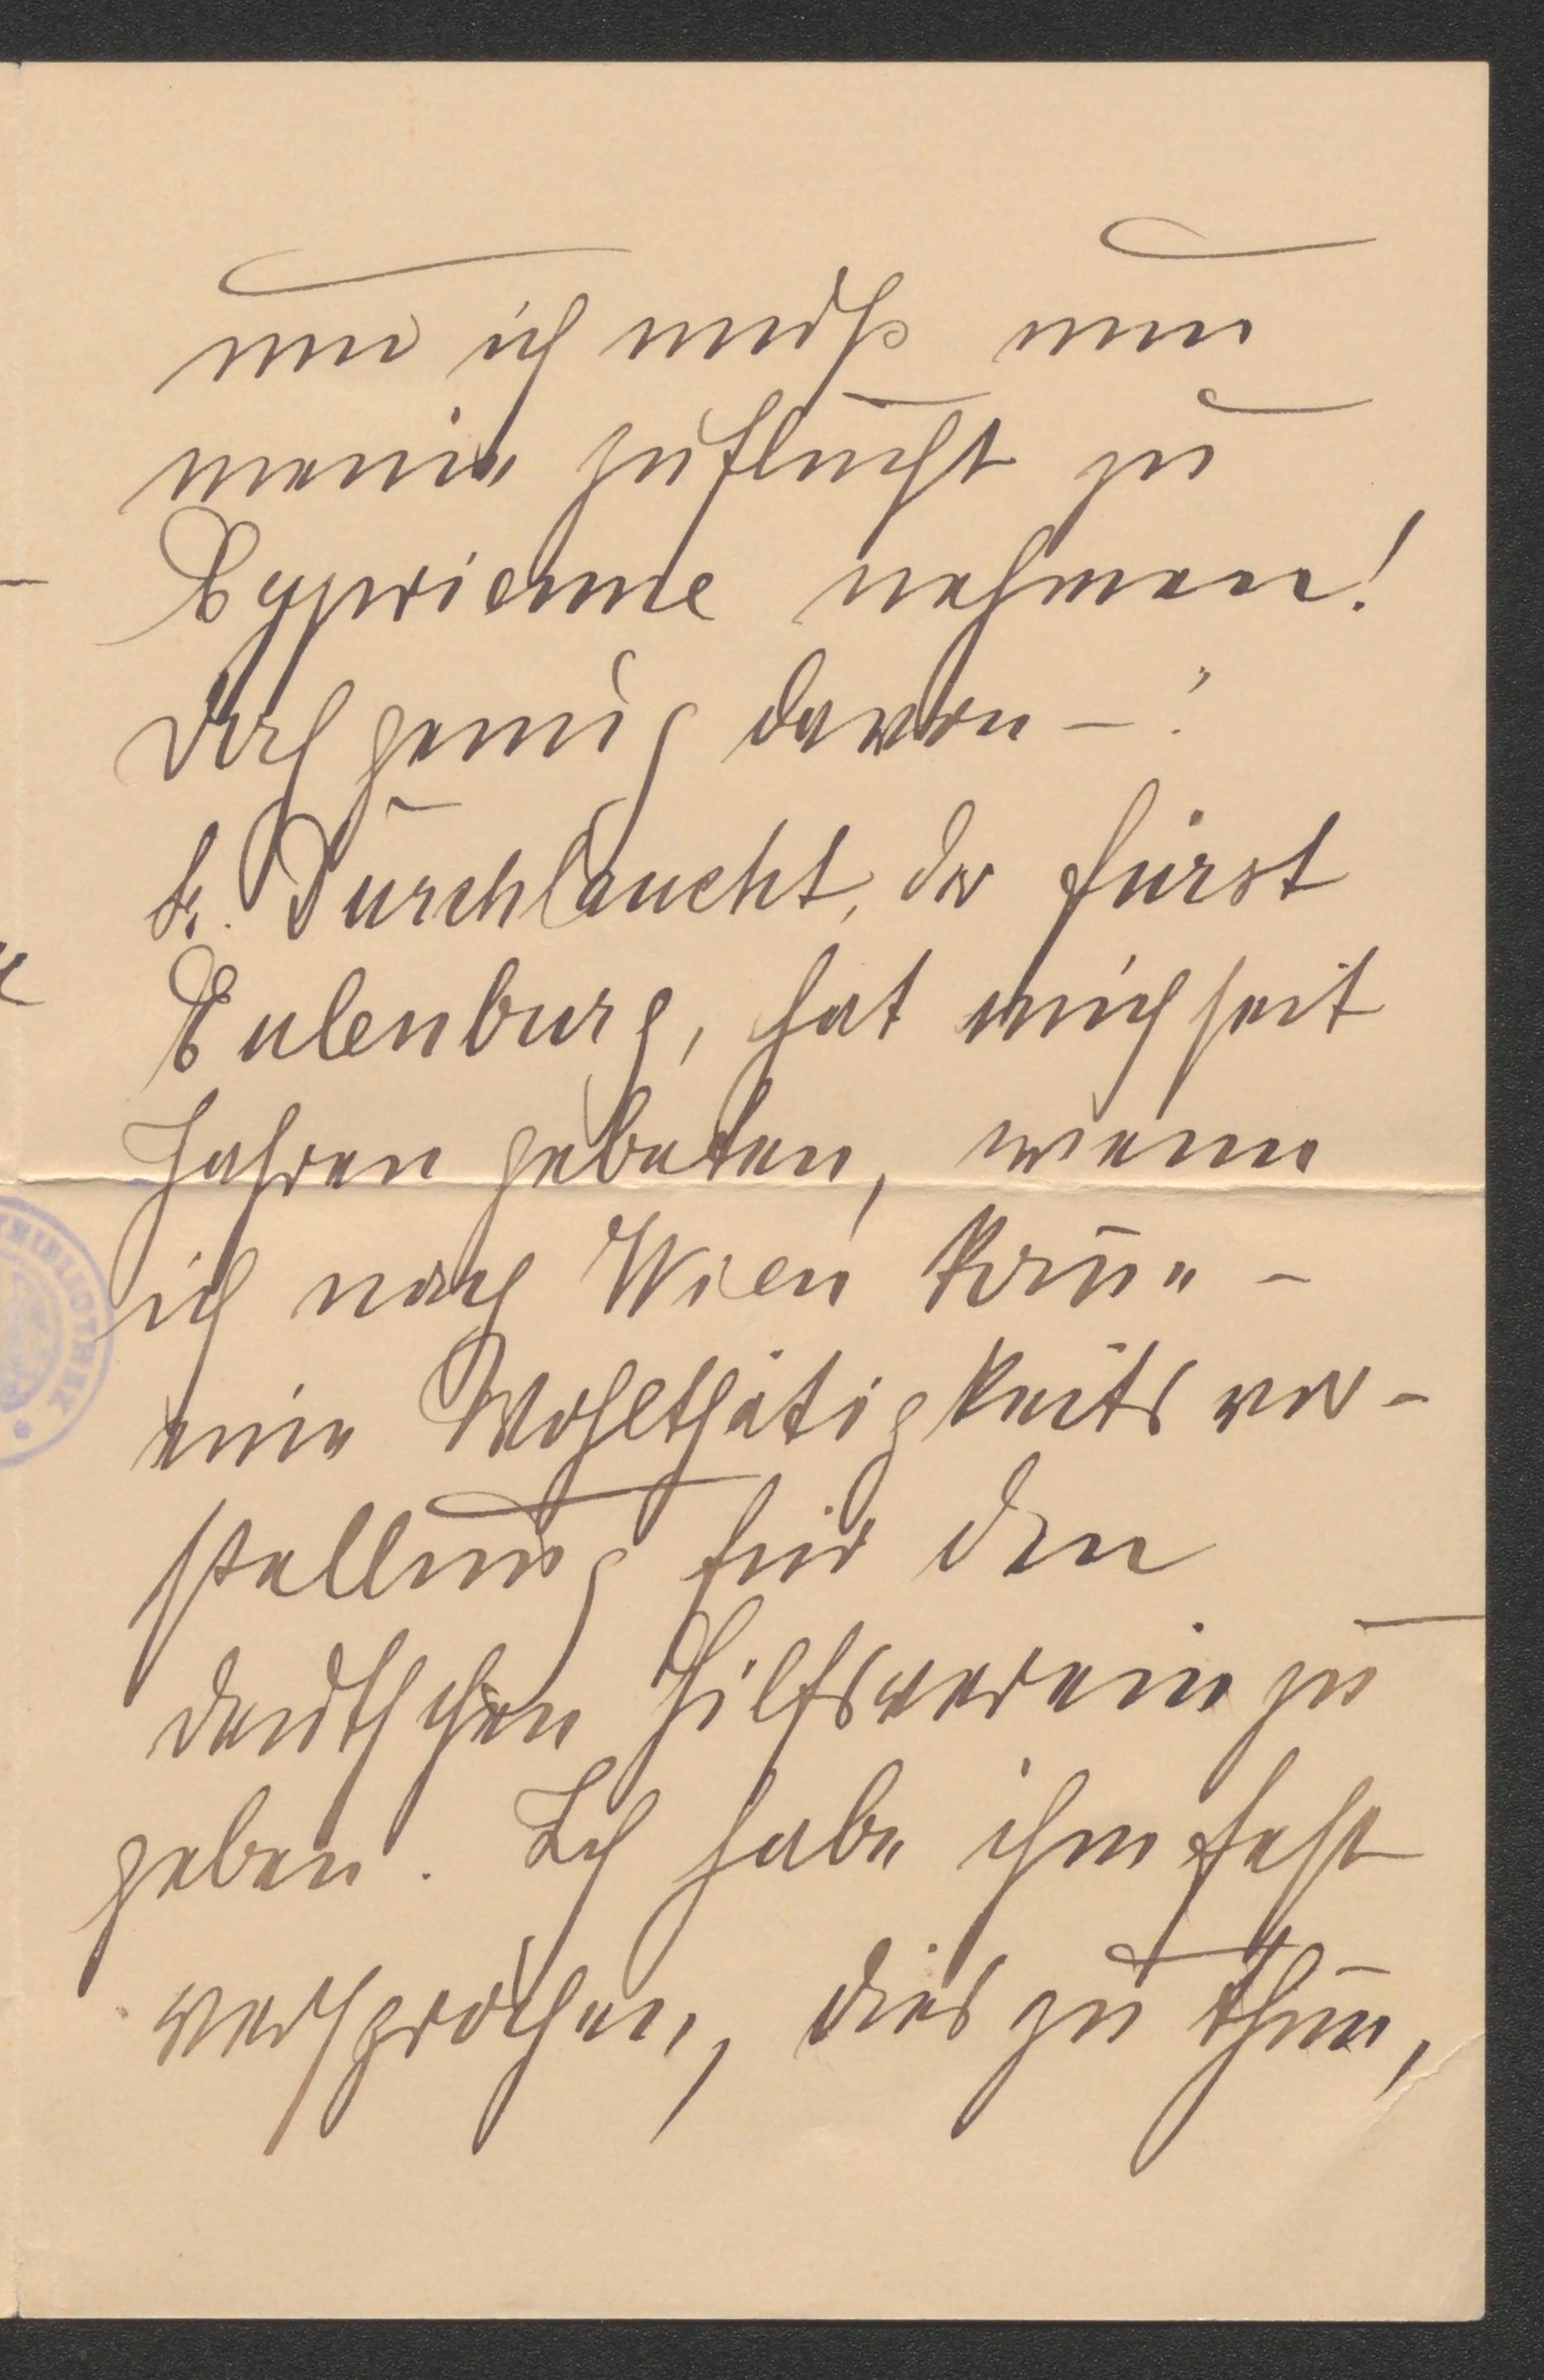 und ich muß nun
meine Zuflucht zu
Cyprienne nehmen!
Doch genug davon – !
S. Durchlaucht, der Fürst
Eulenburg, hat mich seit
Jahren gebeten, wenn
ich nach Wien käme –
eine Wohlthätigkeitsvor-
stellung für den
deutschen Hilfsverein zu
geben. Ich habe ihm fest
versprochen, dies zu thun,